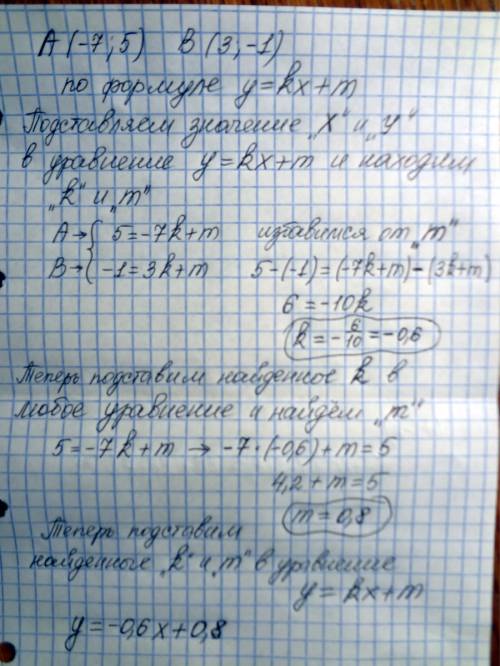 A (-7; 5) B (3; -1)
по формуле y = kx + m
Подставляем значение „x" и „y"
в уравнение y = kx + m и находим
„k" и „m"
A → { 5 = -7k + m избавимся от „m"
B → { -1 = 3k + m 5 - (-1) = (-7k + m) - (3k + m)
6 = -10k
k = - 6/10 = -0,6
Теперь подставим найденное k в
любое уравнение и найдём „m"
5 = -7k + m → -7 · (-0,6) + m = 5
4,2 + m = 5
m = 0,8
Теперь подставим
найденные „k" и „m" в уравнение
y = kx + m
y = -0,6x + 0,8